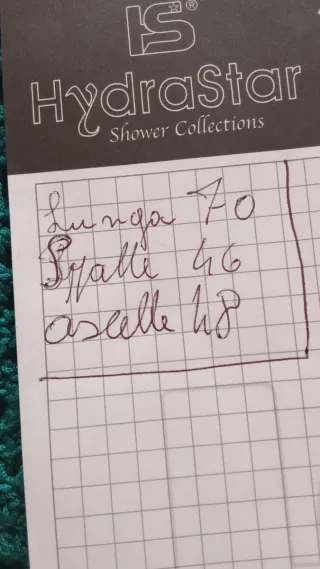 IS®
HydraStar
Shower Collections
Lunga 70
Spalle 46
ascelle 48